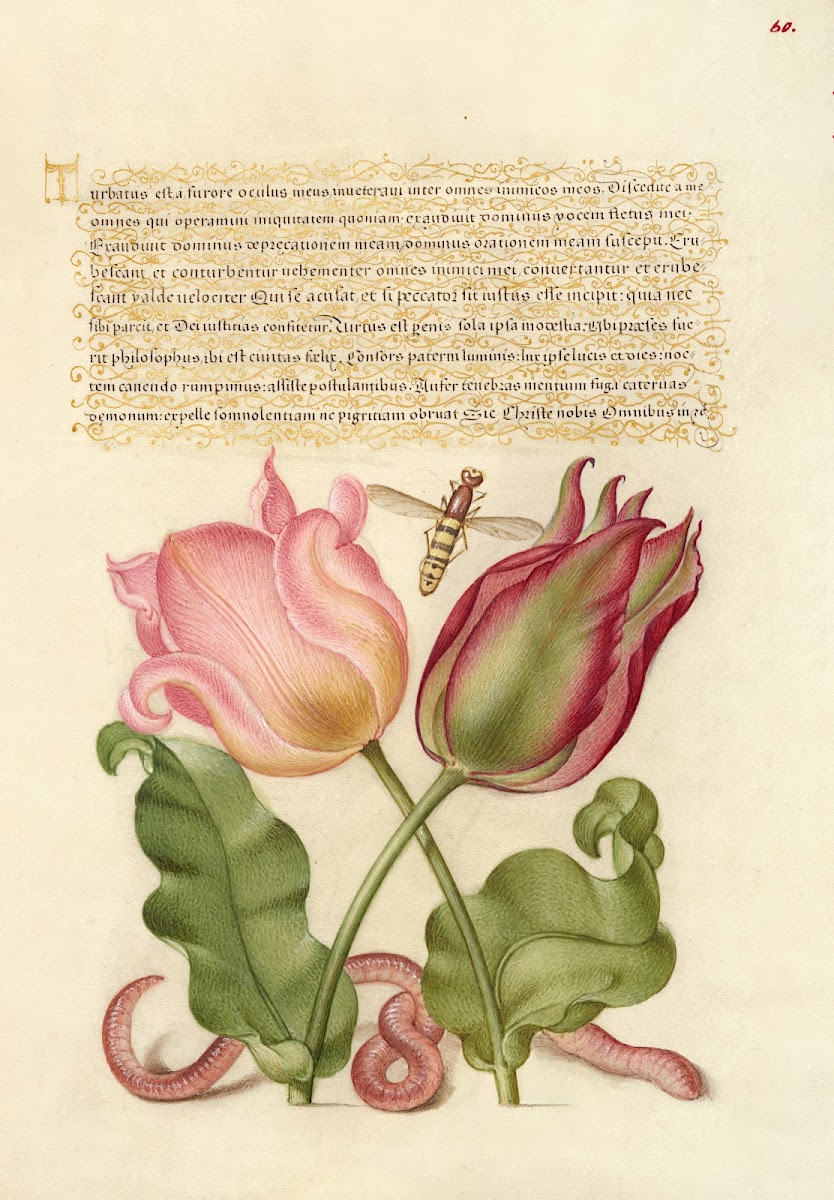 60.
Turbatus est a furore oculus meus, inveteravi inter omnes inimicos meos. Discedite a me
omnes qui operamini iniquitatem quoniam exaudivit dominus vocem fletus mei.
Exaudivit dominus deprecationem meam, dominus orationem meam suscepit. Eru-
bescant, et conturbentur vehementer omnes inimici mei, convertantur et erube-
scant valde velociter Qui se acusat, et si peccator sit iustus esse incipit: quia nec
sibi parcit, et Dei iustitias confitetur. Virtus est genis sola ipsa modestia. Ubi præses fue-
rit philosophus, ibi est civitas fœlix. Consors paterni luminis: lux ipse lucis et dies: noc-
tem canendo rumpimus: assiste postulantibus. Aufer tenebras mentium fuga catervas
demonum: expelle somnolentiam ne pigritiam obruat Sic Christe nobis Omnibus in